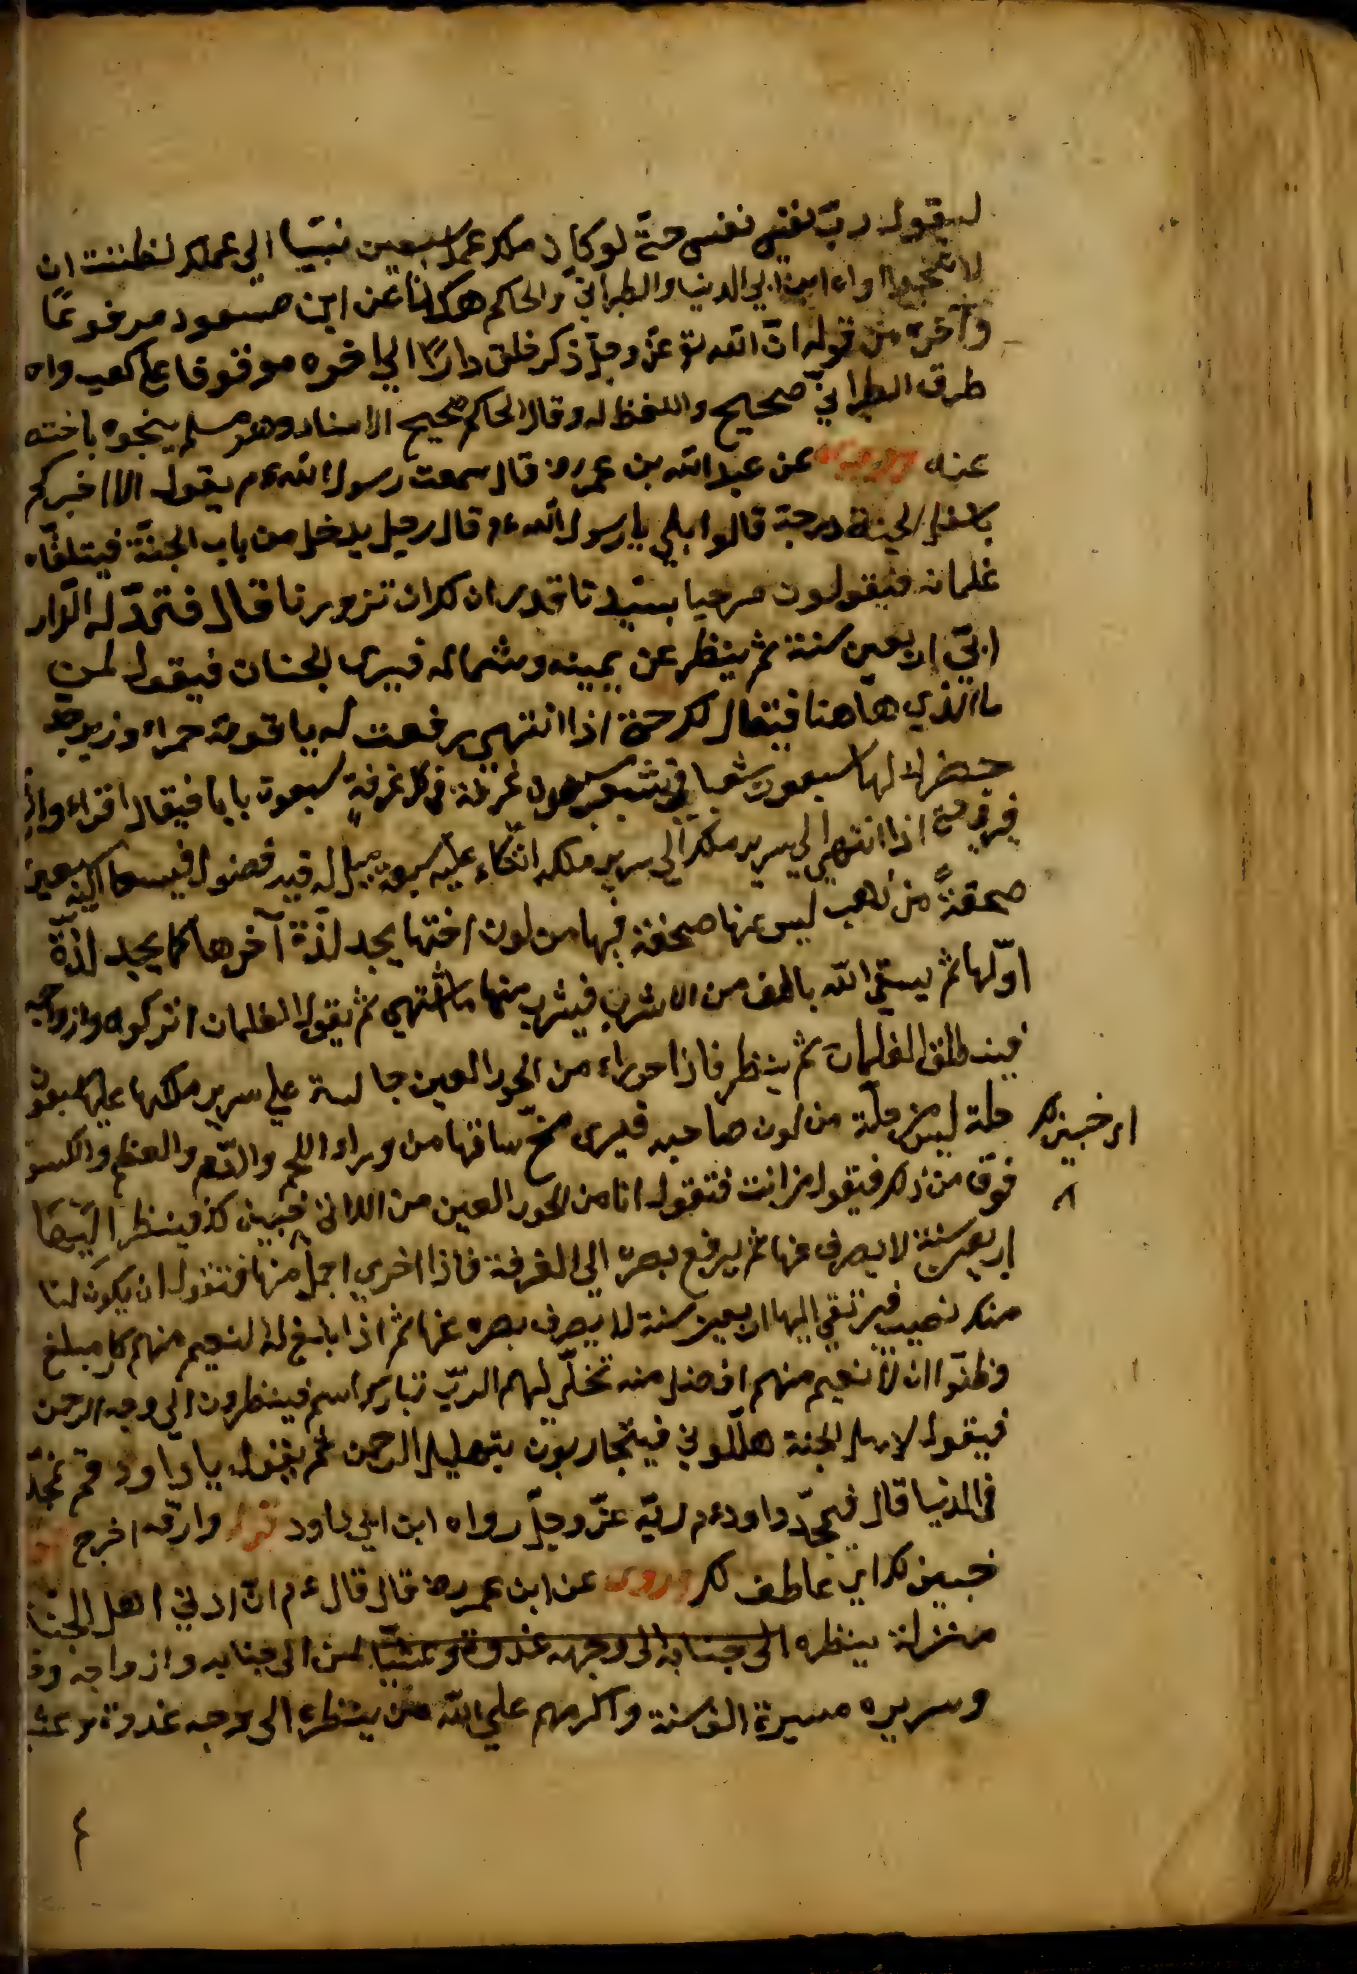 ليقول ربّ نفسي نفسي حتى لو كان لك عمل سبعين نبيّا الي عملك لظننت ان
لا تنجوا رواه ابن ابي الدنيا والطبراني والحاكم هكذا عن ابن مسعود مرفوعًا
وآخره من قوله انّ الله تع عزّ وجلّ ذكره خلق دارًا الي اخره موقوفا علي كعب واحد
طرق الطبراني صحيح واللفظ له وقال الحاكم صحيح الاسناد وهو مسلم بنحوه باختصار
عنه عن عبد الله بن عمر رض قال سمعت رسول الله عم يقول الا اخبركم
باسفل الجنة درجة قالوا بلي يا رسول الله عم قال رجل يدخل من باب الجنّة فيتلقّاه
غلمانه فيقولون مرحبا بسيّدنا قد ان لك ان تزورنا قال فتمدّ له الزرابي
اربعين سنة ثم ينظر عن يمينه وشماله فيري الجنان فيقول لمن
ما الذي هاهنا فيقال لك حتي اذا انتهي رفعت له ياقوتة حمراء وزبرجد
خضراء لها سبعون شعبا في كل شعب سبعون غرفة في كل غرفة سبعون بابا فيقال اقراء وارق
فيرقي حتي اذا انتهي الي سرير ملكه اتّكاء عليه سبعة ميل له فيه فضول فيسعا اليه سبعين
صحفةً من ذهب ليس منها صحفة فيها من لون اختها يجد لذّة آخرها كما يجد لذّة
اوّلها ثم يسعي الله بالوف من الاشرب فيشرب منها ما اشتهي ثم يقول الغلمان اتركوه وازواجه
فينطلق الغلمان ثم ينظر فاذا حوراء من الحور العين جالسة علي سرير ملكها عليها سبعون
حلة ليس منها حلّة من لون صاحبه فيري مخّ ساقها من وراء اللحم والدّم والعظم والكسوة
ار خبئن لك
فوق من ذلك فيقول من انت فتقول انا من الحور العين من اللاتي خبئن لك فينظر اليها
اربعين سنة لا يصرف عنها ثم يرفع بصره الي الغرفة فاذا اخري اجمل منها فتقول ان يكون لنا
منك نصيب فيرتقي اليها اربعين سنة لا يصرف بصره عنها ثم اذا بلغ له النعيم منهم كل مبلغ
وظنّوا ان لا نعيم منهم افضل منه تجلّي لهم الربّ تبارك اسمه فينظرون الي وجه الرحمن
فيقول لاهل الجنة هلّلوني فيتجاربون بتهليل الرحمن ثم يقول يا داود قم فمجّد
في الدنيا قال فيمجّد داود عم ربّه عزّ وجلّ رواه ابن ابي داود وارقه اخرج
خبئن لك اي عاطف لك وروي عن ابن عمر رض قال قال عم انّ ادني اهل الجنة
منزلة ينظره الي جنانه الي وجهه غدوة وعشيّا لمن الي جنانه وازواجه
وسريره مسيرة الف سنة واكرمهم علي الله من ينظر الي وجه غدوة وعشيا
٤